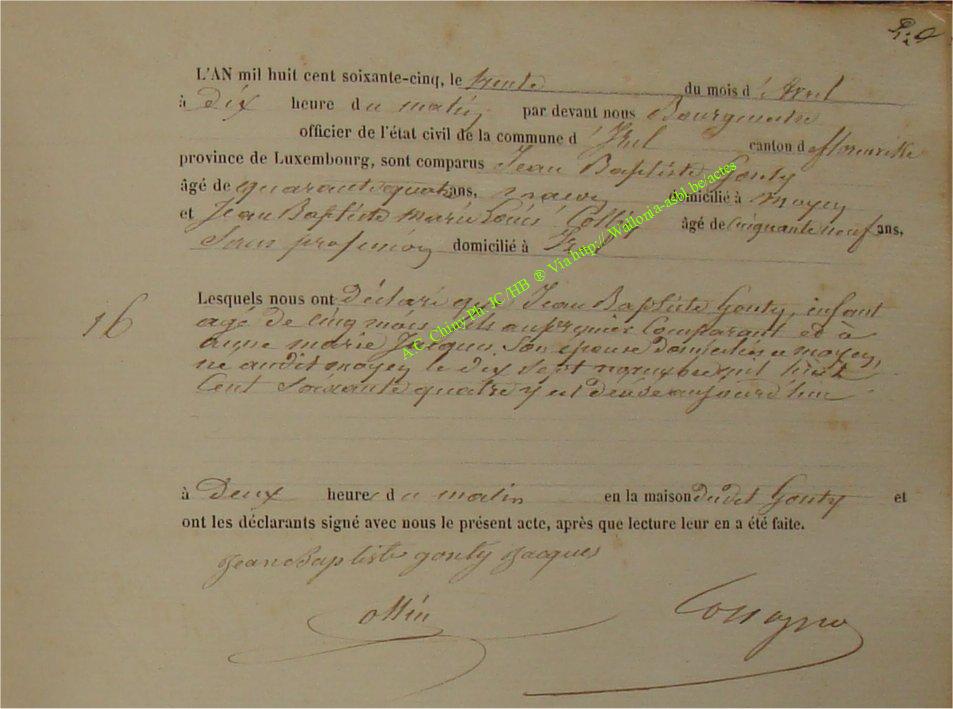 L'AN mil huit cent soixante-cinq, le trente du mois d'Avril
à dix heure du matin par devant nous Bourgmestre
officier de l'état civil de la commune d'Izel canton de florenville
province de Luxembourg, sont comparus Jean Baptiste Gonty
âgé de quarante quatre ans, domicilié à Moyen
et Jean Baptiste Marie Louis Ollin âgé de cinquante neuf ans,
Sans profession domicilié à Izel
Lesquels nous ont déclaré que Jean Baptiste Gonty, enfant
16
agé de cinq mois, fils au premier Comparant et à
anne marie Jacques Son épouse domiciliés a moyen,
né audit moyen le dix sept novembre mil huit
Cent Soixante quatre y est décédé aujourd'hui
à Deux heures du matin en la maison dudit Gonty et
ont les déclarants signé avec nous le présent acte, après que lecture leur en a été faite.
Jean Baptiste gonty Jacques
Ollin
A.C. Chiny Ph. JC/HB ® Via http:// Wallonia-asbl.be/actes